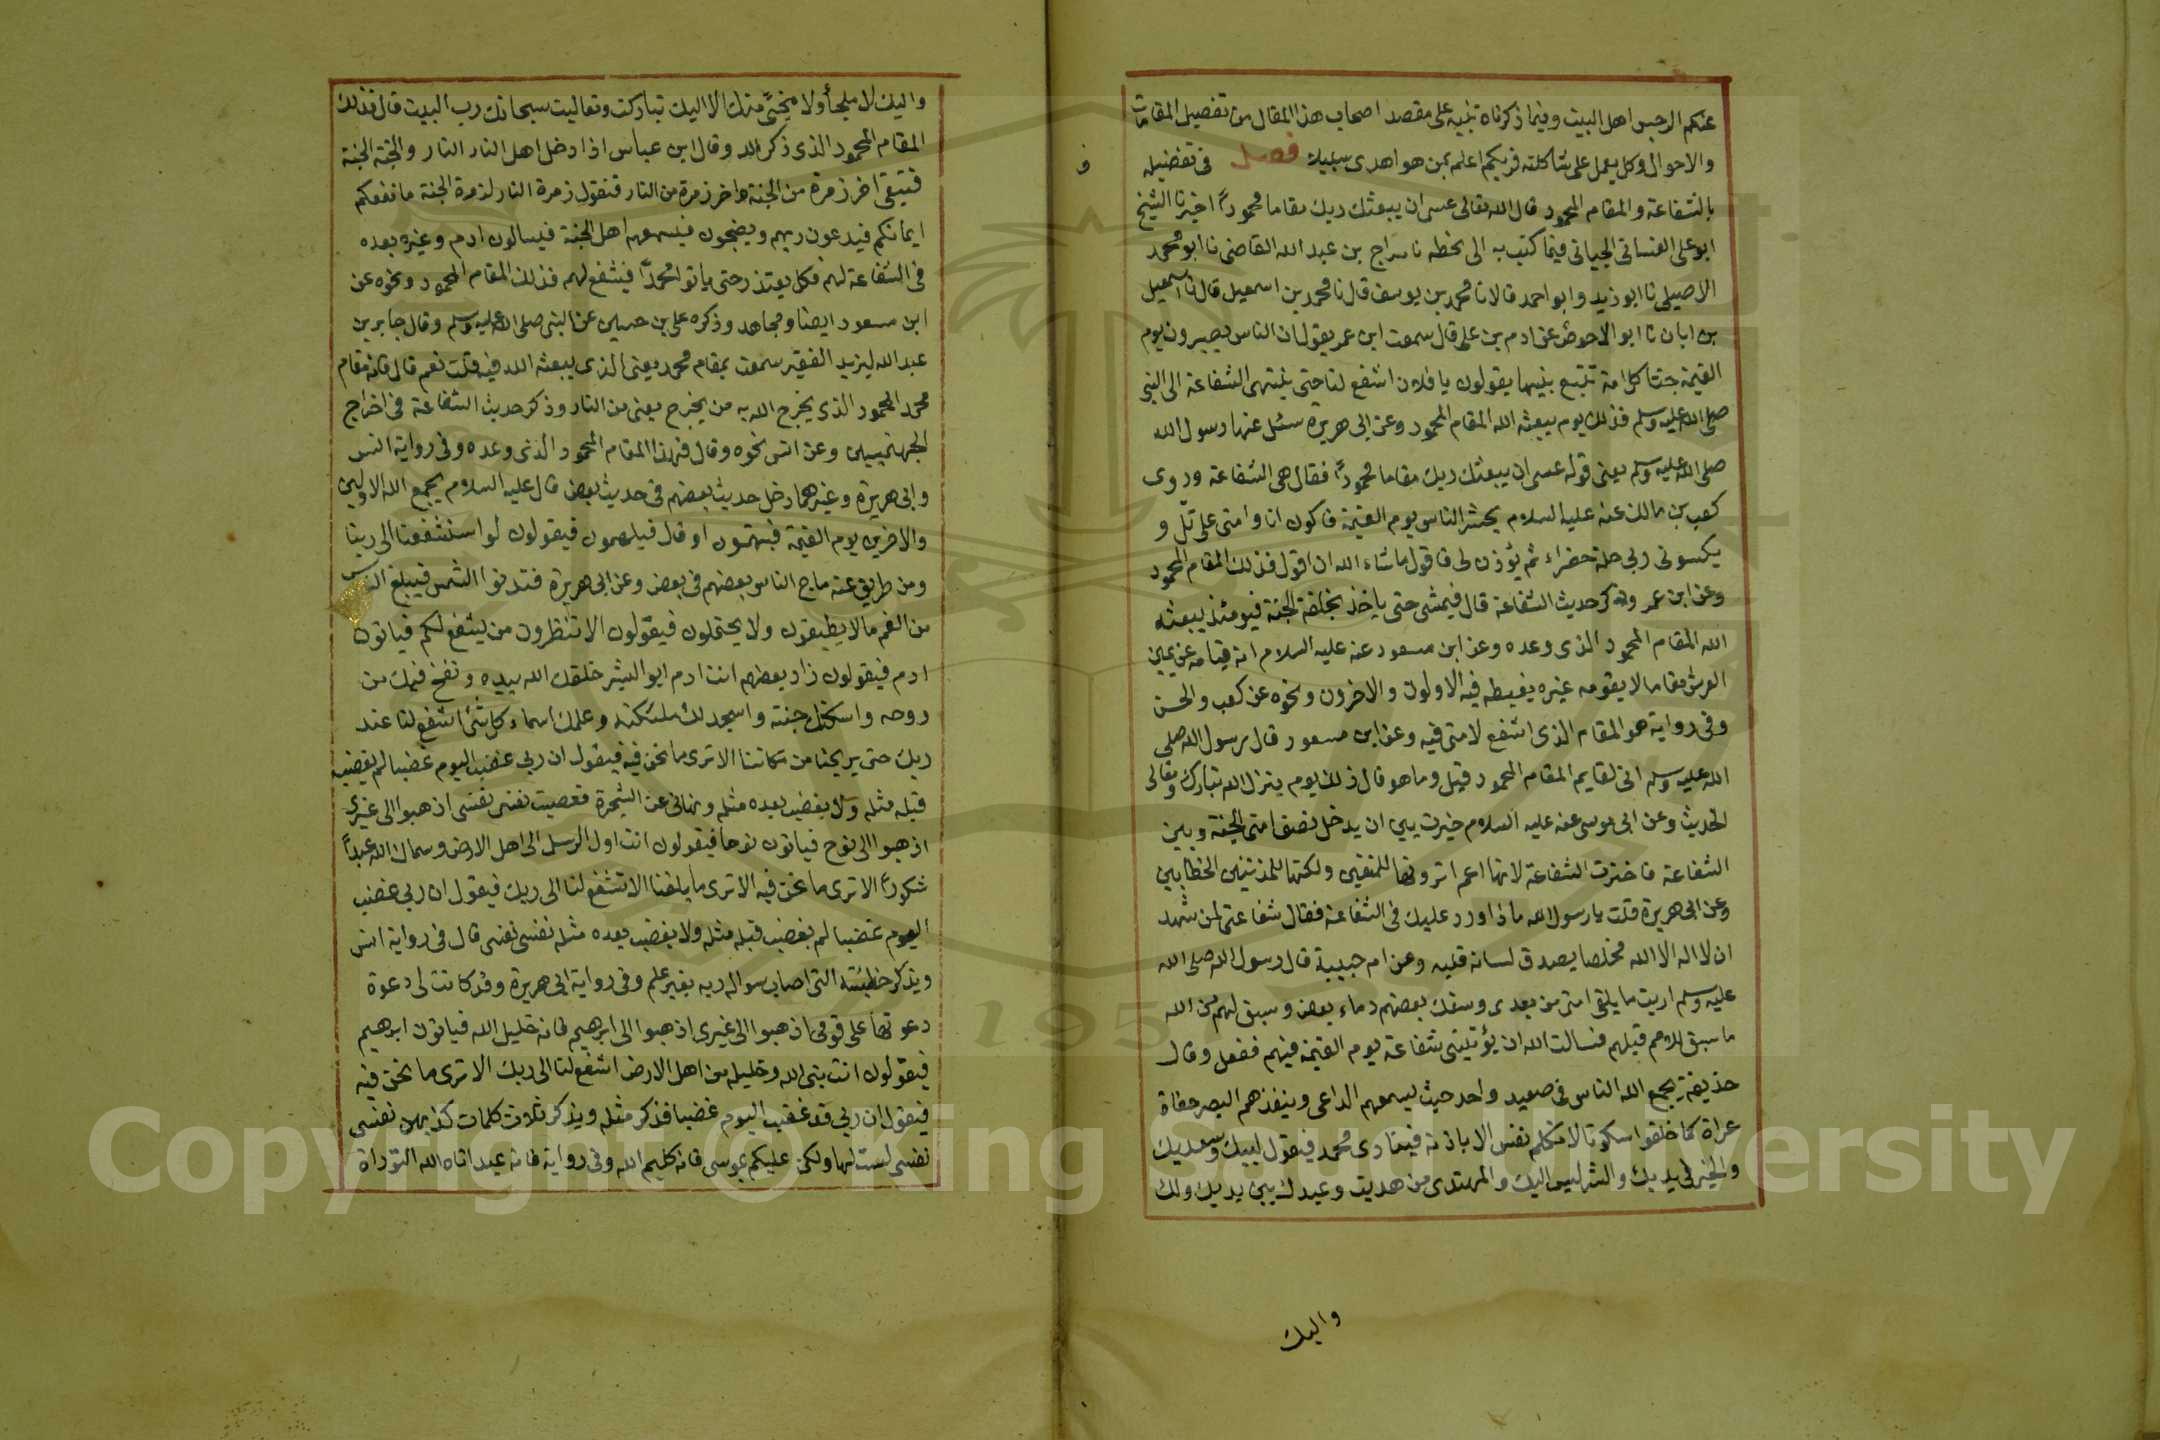 عنكم الرجس اهل البيت وفيما ذكرناه تنبيه على مقصد اصحاب هذا المقال من تفضيل المقامات
والاحوال وكل يعمل على شاكلته فربكم اعلم بمن هو اهدى سبيلا فصل في تفضيله
بالشفاعة والمقام المحمود قال الله تعالى عسى ان يبعثك ربك مقاما محموداً اخبرنا الشيخ
ابو على الغساني الجياني فيما كتب به الى بخطه نا سراج بن عبد الله القاضي نا ابو محمد
الاصيلي نا ابو زيد وابو احمد قالا نا محمد بن يوسف قال نا محمد بن اسمعيل قال نا اسمعيل
بن ابان نا ابو الاحوص عن ادم بن على قال سمعت ابن عمر يقول ان الناس يصيرون يوم
القيمة جثا كل امة تتبع نبيها يقولون يا فلان اشفع لنا حتى ينتهى الشفاعة الى النبي
صلى الله عليه وسلم فذلك يوم يبعثه الله المقام المحمود وعن ابي هريرة سئل عنها رسول الله
صلى الله عليه وسلم يعنى قوله عسى ان يبعثك ربك مقاما محموداً فقال هي الشفاعة وروى
كعب بن مالك عنه عليه السلام يحشر الناس يوم القيمة فاكون انا وامتى على تلّ و
يكسونى ربي حلة خضراء ثم يؤذن لى فاقول ما شاء الله ان اقول فذلك المقام المحمود
وعن ابن عمر وذكر حديث الشفاعة قال فيمشى حتى ياخذ بحلقة الجنة فيومئذ يبعثه
الله المقام المحمود الذى وعده وعن ابن مسعود عنه عليه السلام انه قيامه عن يمين
العرش مقاما لا يقومه غيره يغبطه فيه الاولون والاخرون ونحوه عن كعب والحسن
وفى رواية هو المقام الذى اشفع لامتى فيه وعن ابن مسعود قال رسول الله صلى
الله عليه وسلم انى لقايم المقام المحمود قيل وما هو قال ذلك يوم ينزل الله تبارك وتعالى
الحديث وعن ابى موسى عنه عليه السلام خيرت بين ان يدخل نصف امتى الجنة وبين
الشفاعة فاخترت الشفاعة لانها اعم اترونها للمتقين ولكنها للمذنبين الخطايين
وعن ابى هريرة قلت يا رسول الله ماذا ورد عليك فى الشفاعة فقال شفاعتى لمن شهد
ان لا اله الا الله مخلصا يصدق لسانه قلبه وعن ام حبيبة قال رسول الله صلى الله
عليه وسلم اريت ما يلقى امتى من بعدى وسفك بعضهم دماء بعض وسبق لهم من الله
ما سبق للامم قبلهم فسالت الله ان يؤتينى شفاعة يوم القيمة فيهم ففعل وقال
حذيفة يجمع الله الناس فى صعيد واحد حيث يسمعهم الداعى وينفذهم البصر حفاة
عراة كما خلقوا سكوتا لا تتكلم نفس الا باذنه فينادى محمد فيقول لبيك وسعديك
والخير فى يديك والشر ليس اليك والمهتدى من هديت وعبدك بين يديك ولك
واليك
ف
واليك لا ملجأ ولا منجئ منك الا اليك تباركت وتعاليت سبحانك رب البيت قال فذلك
المقام المحمود الذى ذكر الله وقال ابن عباس اذا دخل اهل النار النار والجنة الجنة
فتبقى اخر زمرة من الجنة واخر زمرة من النار فتقول زمرة النار لزمرة الجنة ما نفعكم
ايمانكم فيدعون ربهم ويضجون فيسمعهم اهل الجنة فيسالون ادم وغيره بعده
فى الشفاعة لهم فكل يعتذر حتى ياتوا محمداً فيشفع لهم فذلك المقام المحمود ونحوه عن
ابن مسعود ايضا ومجاهد وذكره على بن حسين عن النبى صلى الله عليه وسلم وقال جابر بن
عبد الله ليزيد الفقير سمعت بمقام محمد يعنى الذى يبعثه الله فيه قلت نعم قال فانه مقام
محمد المحمود الذى يخرج الله به من يخرج يعنى من النار وذكر حديث الشفاعة فى اخراج
الجهنميين وعن انس نحوه وقال فهذا المقام المحمود الذى وعده وفى رواية انس
وابى هريرة وغيرهما دخل حديث بعضهم فى حديث بعض قال عليه السلام يجمع الله الاولين
والاخرين يوم القيمة فيهتمون او قال فيلهمون فيقولون لو استشفعنا الى ربنا
ومن طريق عنه ماج الناس بعضهم فى بعض وعن ابى هريرة فتدنوا الشمس فيبلغ الناس
من الغم ما لا يطيقون ولا يحتملون فيقولون الا تنظرون من يشفع لكم فياتون
ادم فيقولون زاد بعضهم انت ادم ابو البشر خلقك الله بيده ونفخ فيك من
روحه واسكنك جنته واسجد لك ملئكته وعلمك اسماء كل شئ اشفع لنا عند
ربك حتى يريحنا من مكاننا الا ترى ما نحن فيه فيقول ان ربى غضب اليوم غضبا لم يغضب
قبله مثله ولا يغضب بعده مثله ونهانى عن الشجرة فعصيت نفسى نفسى اذهبوا الى غيرى
اذهبوا الى نوح فياتون نوحا فيقولون انت اول الرسل الى اهل الارض وسماك الله عبداً
شكوراً الا ترى ما نحن فيه الا ترى ما بلغنا الا تشفع لنا الى ربك فيقول ان ربى غضب
اليوم غضبا لم يغضب قبله مثله ولا يغضب بعده مثله نفسى نفسى قال فى رواية انس
ويذكر خطيئته التى اصاب سواله ربه بغير علم وفى رواية ابى هريرة وقد كانت لى دعوة
دعوتها على قومى اذهبوا الى غيرى اذهبوا الى ابرهيم فانه خليل الله فياتون ابرهيم
فيقولون انت نبى الله وخليله من اهل الارض اشفع لنا الى ربك الا ترى ما نحن فيه
فيقول ان ربى قد غضب اليوم غضبا فذكر مثله ويذكر ثلاث كلمات كذبهن نفسى
نفسى لست لها ولكن عليكم بموسى فانه كليم الله وفى رواية فانه عبد اتاه الله التوراة
1957
Copyright © King Saud University